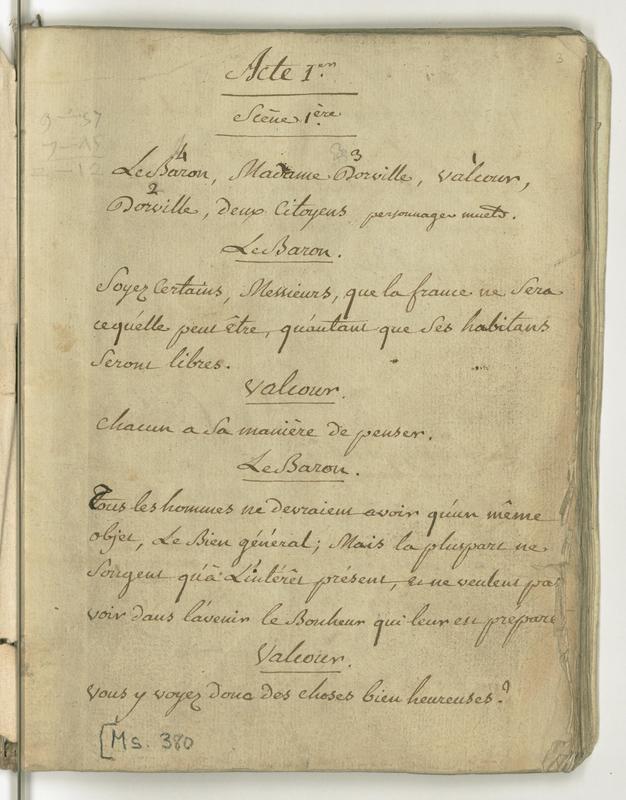 3
Acte 1er
Scène 1ère
Le Baron, Madame Dorville, Valcour,
4 3
Dorville, deux Citoyens personnages muets.
2
Le Baron.
Soyez Certains, Messieurs, que la france ne Sera
cequ'elle peut être, qu'autant que Ses habitans
Seront libres.
Valcour.
Chacun a Sa manière de penser.
Le Baron.
Tous les hommes ne devraient avoir qu'un même
objet, Le Bien général; Mais la pluspart ne
Songent qu'à L'intérêt présent, et ne veulent pas
voir dans l'avenir le Bonheur qui leur est préparé
Valcour.
Vous y voyez donc des choses bien heureuses?
[Ms. 380